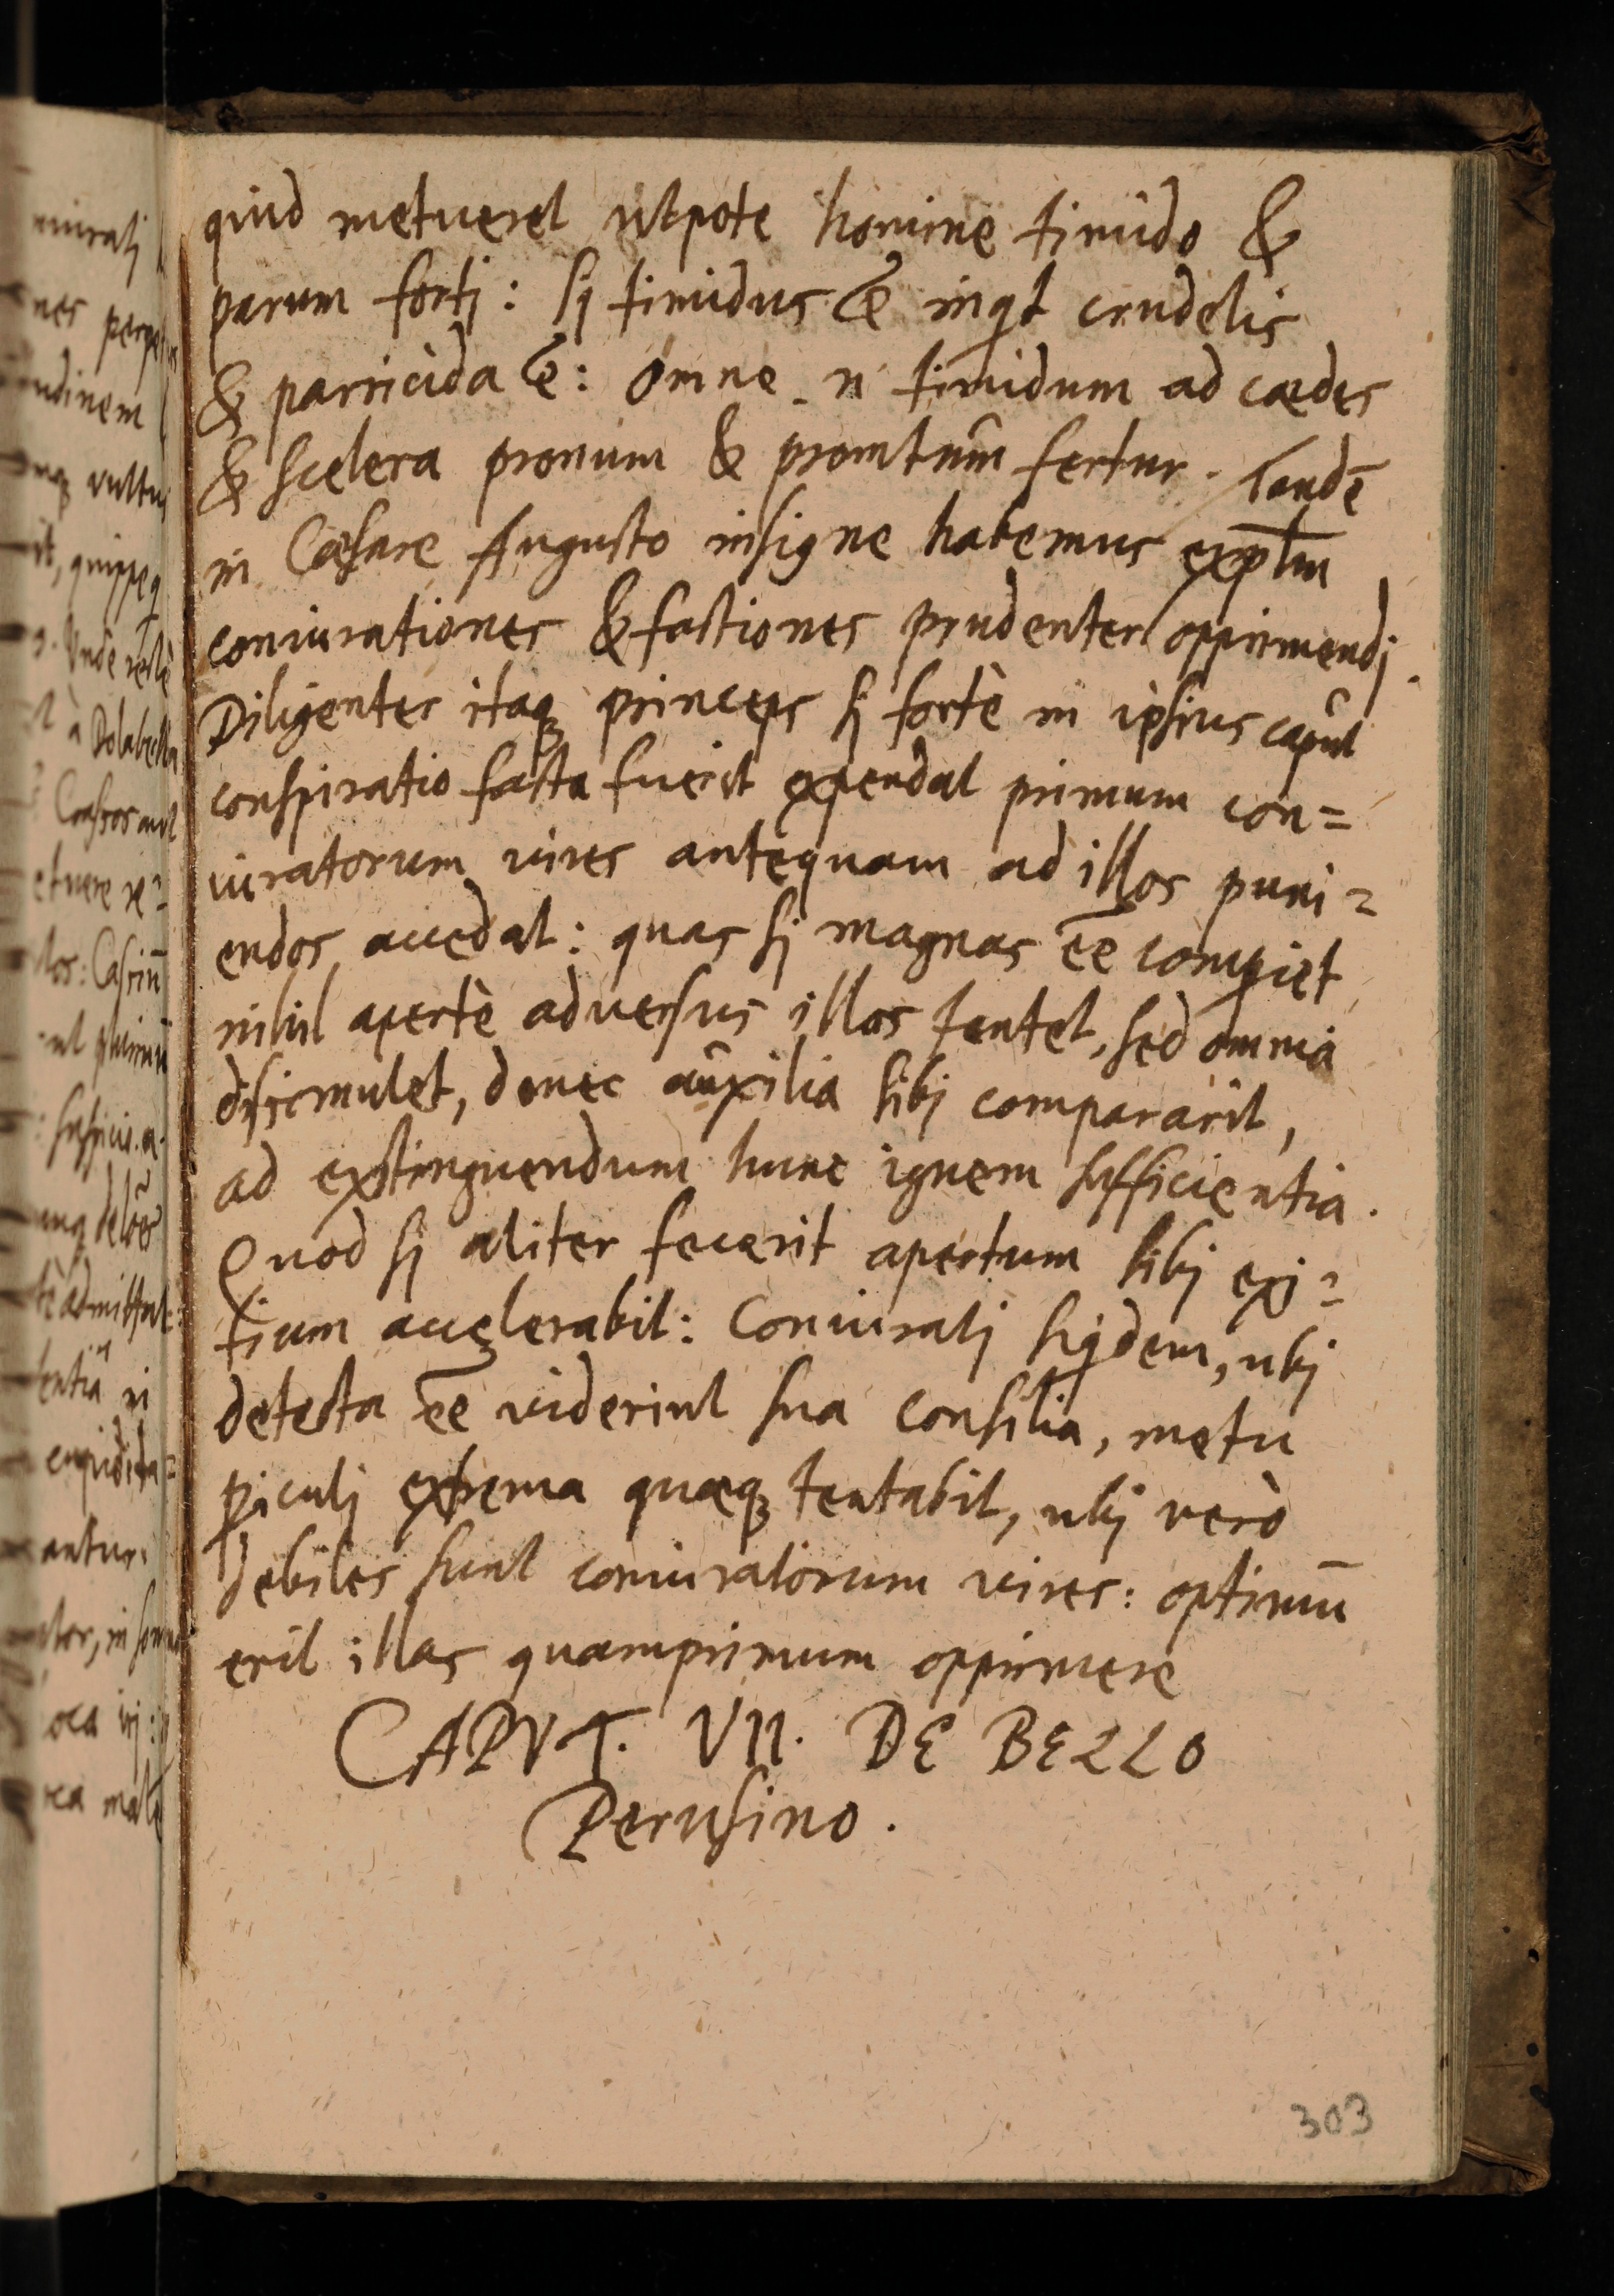 quid metueret utpote homine timido &
parum fortj: sj timidus ē inqt crudelis
& parricida ē: omne n̄ timidum ad caedes
& scelera pronum & promtum fertur. Tandē
in Caesare Augusto insigne habemus exp̄lm
coniurationes & factiones prudenter opprimendj.
Diligenter itaq; princeps sj fortè in ipsius caput
conspiratio facta fuerit expendat primum con=
iuratorum vires antequam ad illos puni=
endos accedat: quas sj magnas ēe comperiet
nihil apertè adversus illos tentet, sed omnia
dissimulet, donec auxilia sibj compararit,
ad extinguendum hunc ignem sufficientia.
Quod sj aliter fecerit apertum sibj exi=
tium accelerabit: Coniuratj sqdem, ubj
detecta ēe viderint sua consilia, metu
piculj extrema quaeq; tentabit, ubj verò
debiles sunt coniuratorum vires: optimū
erit illas quamprimum opprimere
CAPVT. VII. DE BELLO
Perusino.
303